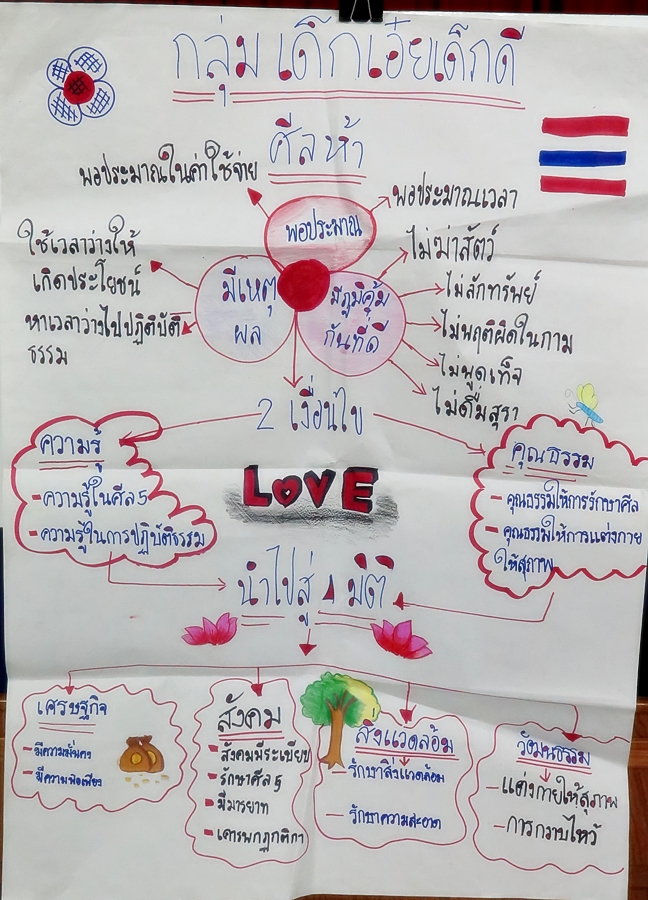 กลุ่ม เด็กเอ๋ยเด็กดี
ศีลห้า
พอประมาณในค่าใช้จ่าย
พอประมาณเวลา
พอประมาณ
ใช้เวลาว่างให้
เกิดประโยชน์
หาเวลาว่างไปปฏิบัติ
ธรรม
มีเหตุ
ผล
มีภูมิคุ้ม
กันที่ดี
ไม่ฆ่าสัตว์
ไม่ลักทรัพย์
ไม่พฤติผิดในกาม
ไม่พูดเท็จ
ไม่ดื่มสุรา
2 เงื่อนไข
ความรู้
- ความรู้ในศีล 5
- ความรู้ในการปฏิบัติธรรม
LOVE
คุณธรรม
- คุณธรรมให้การรักษาศีล
- คุณธรรมให้การแต่งกาย
ให้สุภาพ
นำไปสู่ 4 มิติ
เศรษฐกิจ
- มีความมั่นคง
- มีความพอเพียง
สังคม
- สังคมมีระเบียบ
- รักษาศีล 5
- มีมารยาท
- เคารพกฎกติกา
สิ่งแวดล้อม
- รักษาสิ่งแวดล้อม
- รักษาความสะอาด
วัฒนธรรม
- แต่งกายให้สุภาพ
- การกราบไหว้